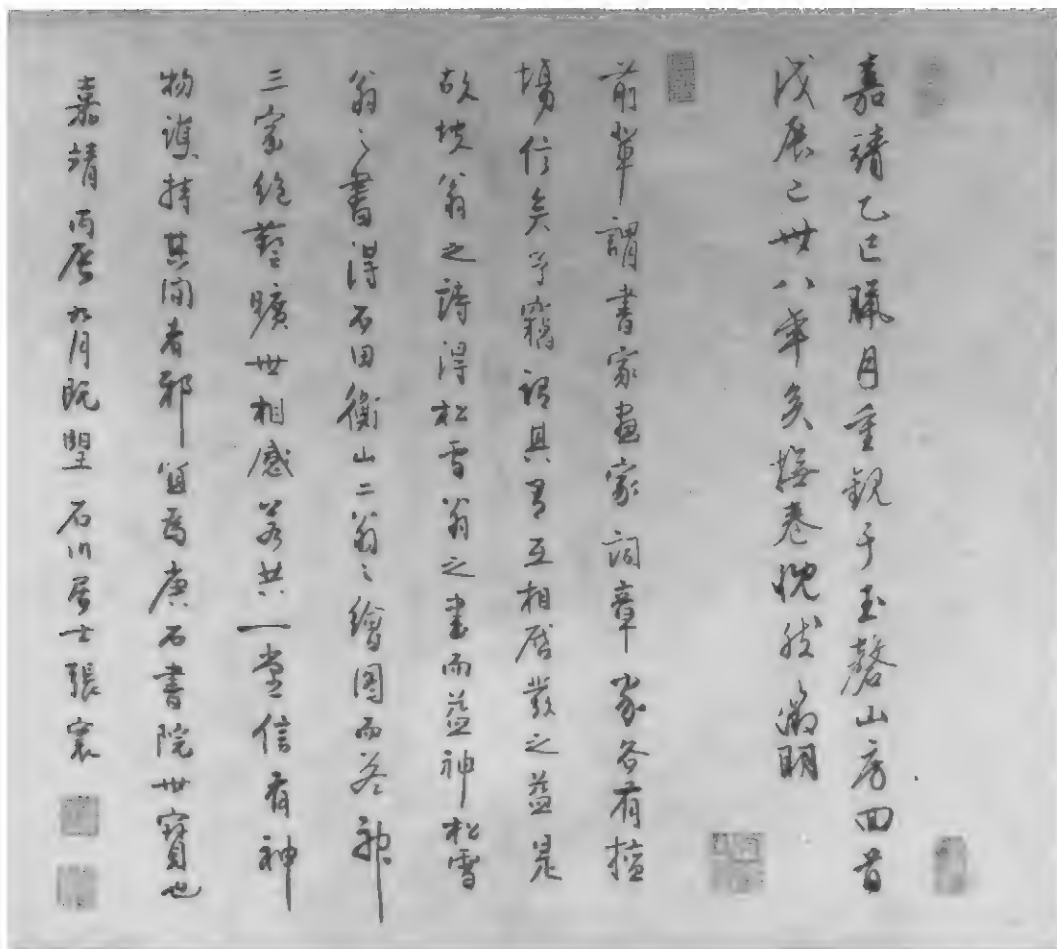 嘉靖乙巳臘月重觀于玉磬山房回首
戊辰已卅八年矣撫卷怳然 徵明
前輩謂書家畫家詞章家各有擅
場信矣予竊謂其有互相啓發之益是
故坡翁之詩得松雪翁之書而益神松雪
翁之書得石田衡山二翁之繪圖而益神
三家絶藝曠世相感若共一堂信有神
物護持其間者邪宜爲唐石書院世寶也
嘉靖丙辰九月既望石川居士張寰